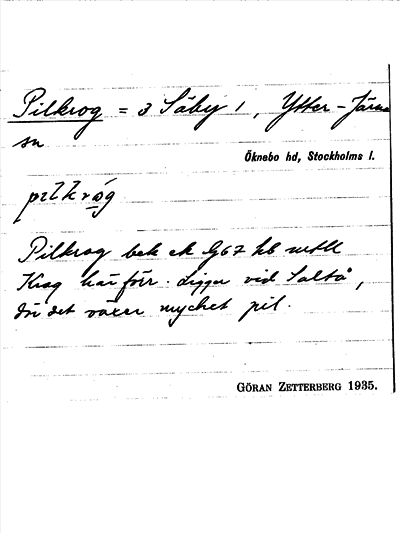 Pilkrog = 3 Säby 1, Ytter-Järna
sn
Öknebo hd, Stockholms l.
pilkróg
Pilkrog bek ek G67 hb mtll
Krog här förr. Ligger vid Saltå,
där det växer mycket pil.
GÖRAN ZETTERBERG 1935.